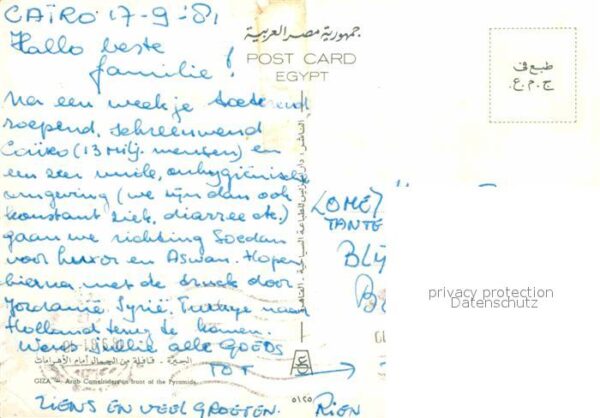 CAÏRO 17-9-'81
Hallo beste
familie!
Na een weekje toeterend
roepend, schreeuwend
Caïro (13 milj. mensen) en
een zeer vuile, onhygiënische
omgeving (we zijn dan ook
konstant ziek, diarree etc.)
gaan we richting Soedan
voor Luxor en Aswan. Hopen
hierna met de truck door
Jordanië, Syrië, Turkije naar
Holland terug te komen.
Wens jullie alle GOEDS
TOT
ZIENS EN VEEL GROETEN. RIEN
جمهورية مصر العربية
POST CARD
EGYPT
طبع فى
ج.م.ع.
TANTE
privacy protection
Datenschutz
الجيزة - قافلة من الجمال أمام الأهرامات
GIZA - Arab Camelriders in front of the Pyramids.
٥١٢٥